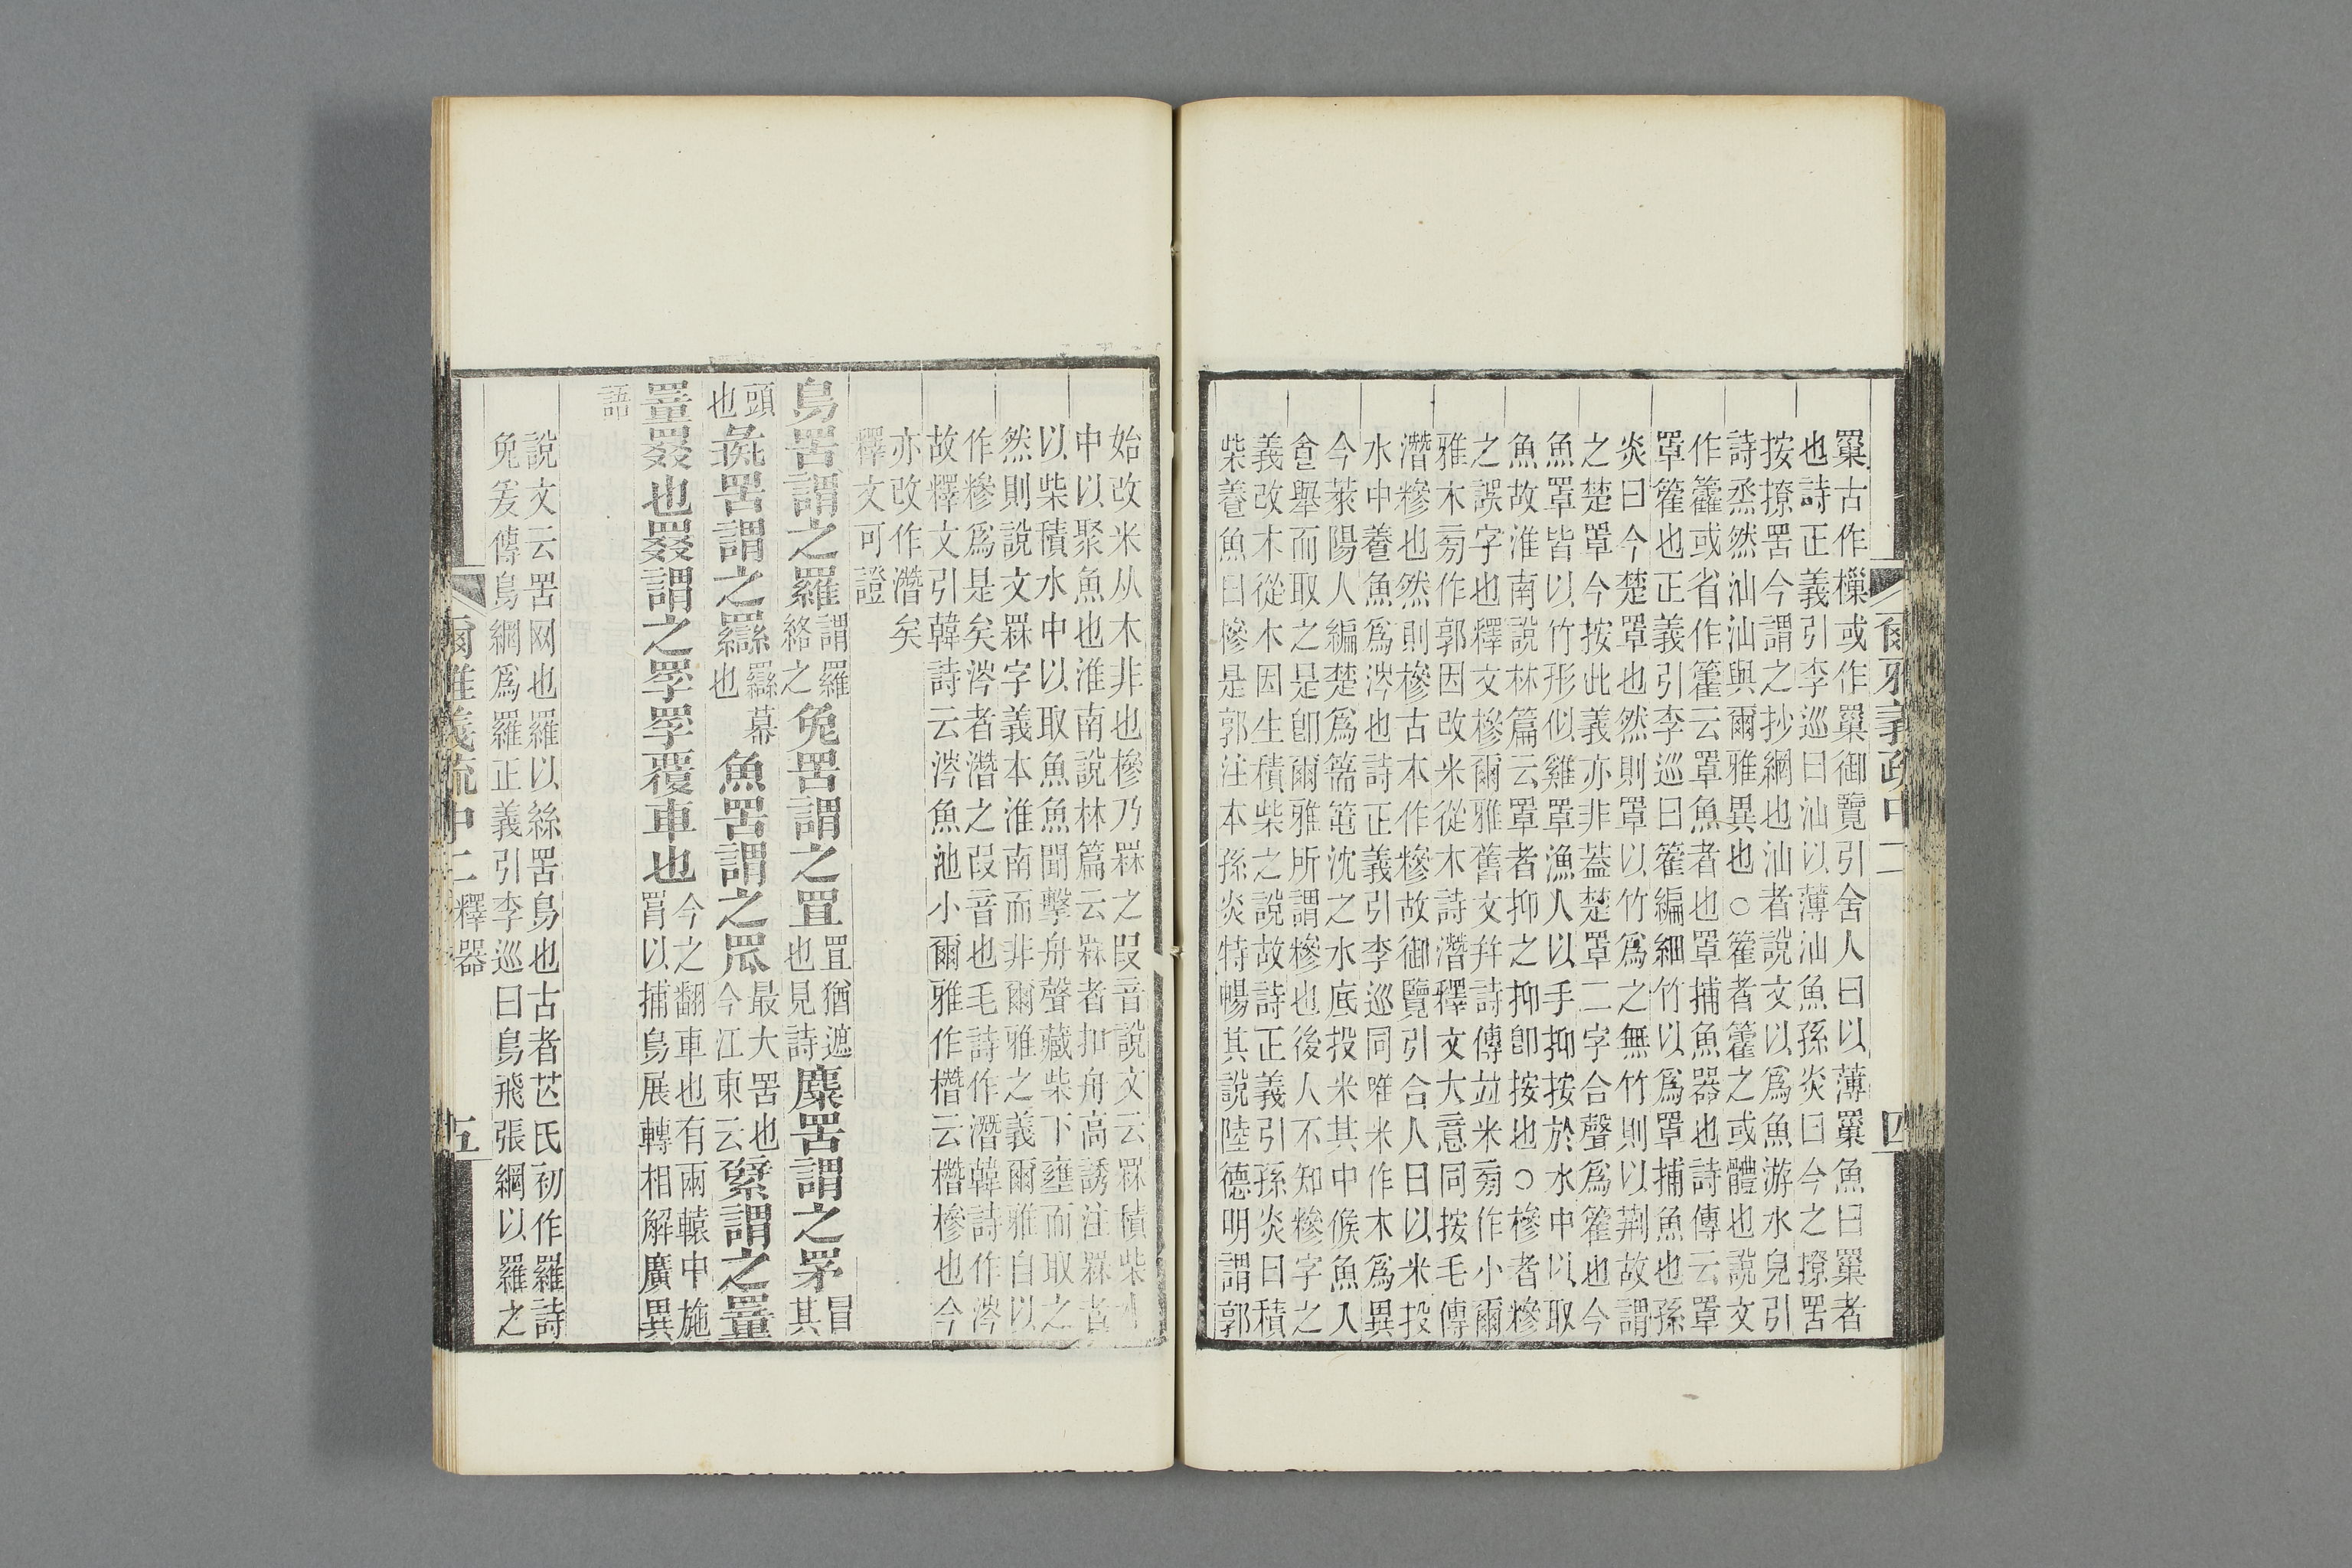 罺古作樔或作罺御覽引舍人曰以薄罺魚曰罺者
也詩正義引李巡曰汕以薄汕魚孫炎曰今之撩罟
按撩罟今謂之抄網也汕者說文以爲魚游水皃引
詩烝然汕汕與爾雅異也○籗者籱之或體也說文
作籱或省作籗云罩魚者也罩捕魚器也詩傳云罩
罩籗也正義引李巡曰籗編細竹以爲罩捕魚也孫
炎曰今楚罩也然則罩以竹爲之無竹則以荆故謂
之楚罩今按此義亦非葢楚罩二字合聲爲籗也今
魚罩皆以竹形似雞罩漁人以手抑按於水中以取
魚故淮南說林篇云罩者抑之抑卽按也○槮者糝
之誤字也釋文槮爾雅舊文幷詩傳竝米㫄作小爾
雅木㫄作郭因改米從木詩潛釋文大意同按毛傳
潛糝也然則槮古本作糝故御覽引舍人曰以米投
水中養魚爲涔也詩正義引李巡同唯米作木爲異
今萊陽人編楚爲沈之水底投米其中候魚入
食舉而取之是卽爾雅所謂糝也後人不知糝字之
義改木從木因生積柴之說故詩正義引孫炎曰積
柴養魚曰槮是郭注本孫炎特暢其說陸德明謂郭
爾雅義疏中二
四
始改米从木非也槮乃罧之叚音說文云罧積柴水
中以聚魚也淮南說林篇云罧者扣舟高誘注罧者
以柴積水中以取魚魚聞擊舟聲藏柴下壅而取之
然則說文罧字義本淮南而非爾雅之義爾雅自以
作糝爲是矣涔者潛之叚音也毛詩作潛韓詩作涔
故釋文引韓詩云涔魚池小爾雅作橬云橬槮也今
亦改作潛矣
釋文可證
鳥罟謂之羅謂羅絡之兔罟謂之罝罝猶遮也見詩麋罟謂之罞冒其
頭也彘罟謂之羉羉幕也魚罟謂之罛最大罟也今江東云繴謂之罿
罿罬也罬謂之罦罦覆車也今之翻車也有兩轅中施罥以捕鳥展轉相解廣異
語
說文云罟网也羅以絲罟鳥也古者芒氏初作羅詩
兔爰傳鳥網爲羅正義引李巡曰鳥飛張網以羅之
爾雅義疏中二釋器
五